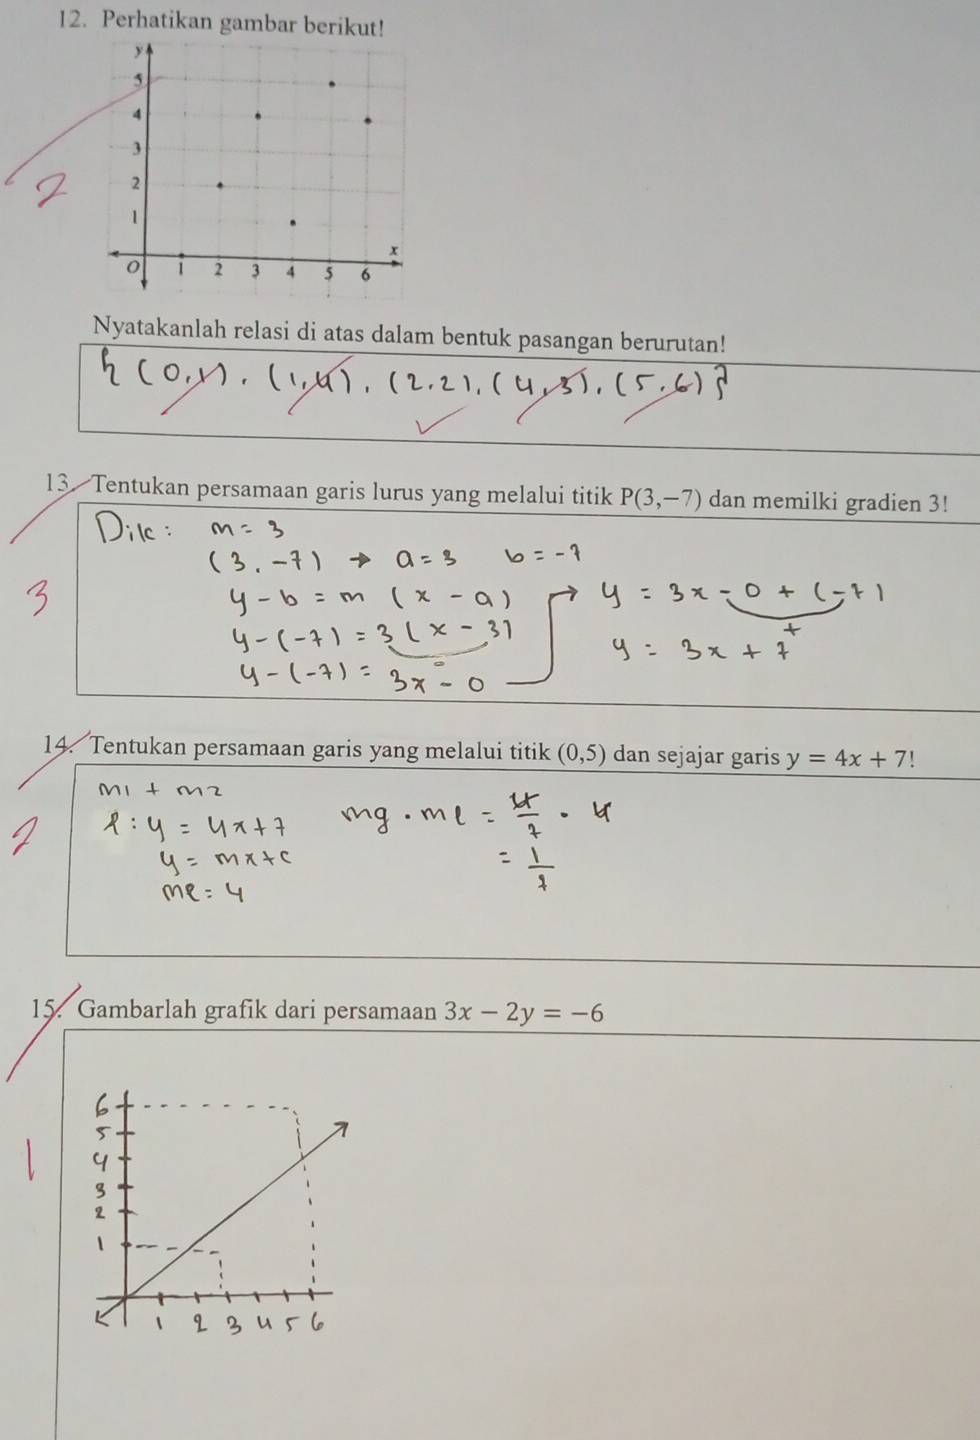 12. Perhatikan gambar berikut!
y
5
4
3
2
1
x
O 1 2 3 4 5 6
2
Nyatakanlah relasi di atas dalam bentuk pasangan berurutan!
{(0,1), (1,4), (2,2), (4,3), (5,6)}
13. Tentukan persamaan garis lurus yang melalui titik P(3,−7) dan memilki gradien 3!
3
Dik: m = 3
(3, -7) → a = 3 b = -7
y - b = m (x - a)
y - (-7) = 3 (x - 3)
y - (-7) = 3x - 0
y = 3x - 0 + (-7)
y = 3x + 7
14. Tentukan persamaan garis yang melalui titik (0,5) dan sejajar garis y = 4x + 7!
2
m1 + m2
l : y = 4x + 7
y = mx + c
ml = 4
mg . ml = 4/7 . 4
= 1/7
15. Gambarlah grafik dari persamaan 3x − 2y = −6
1
6
5
4
3
2
1
1 2 3 4 5 6